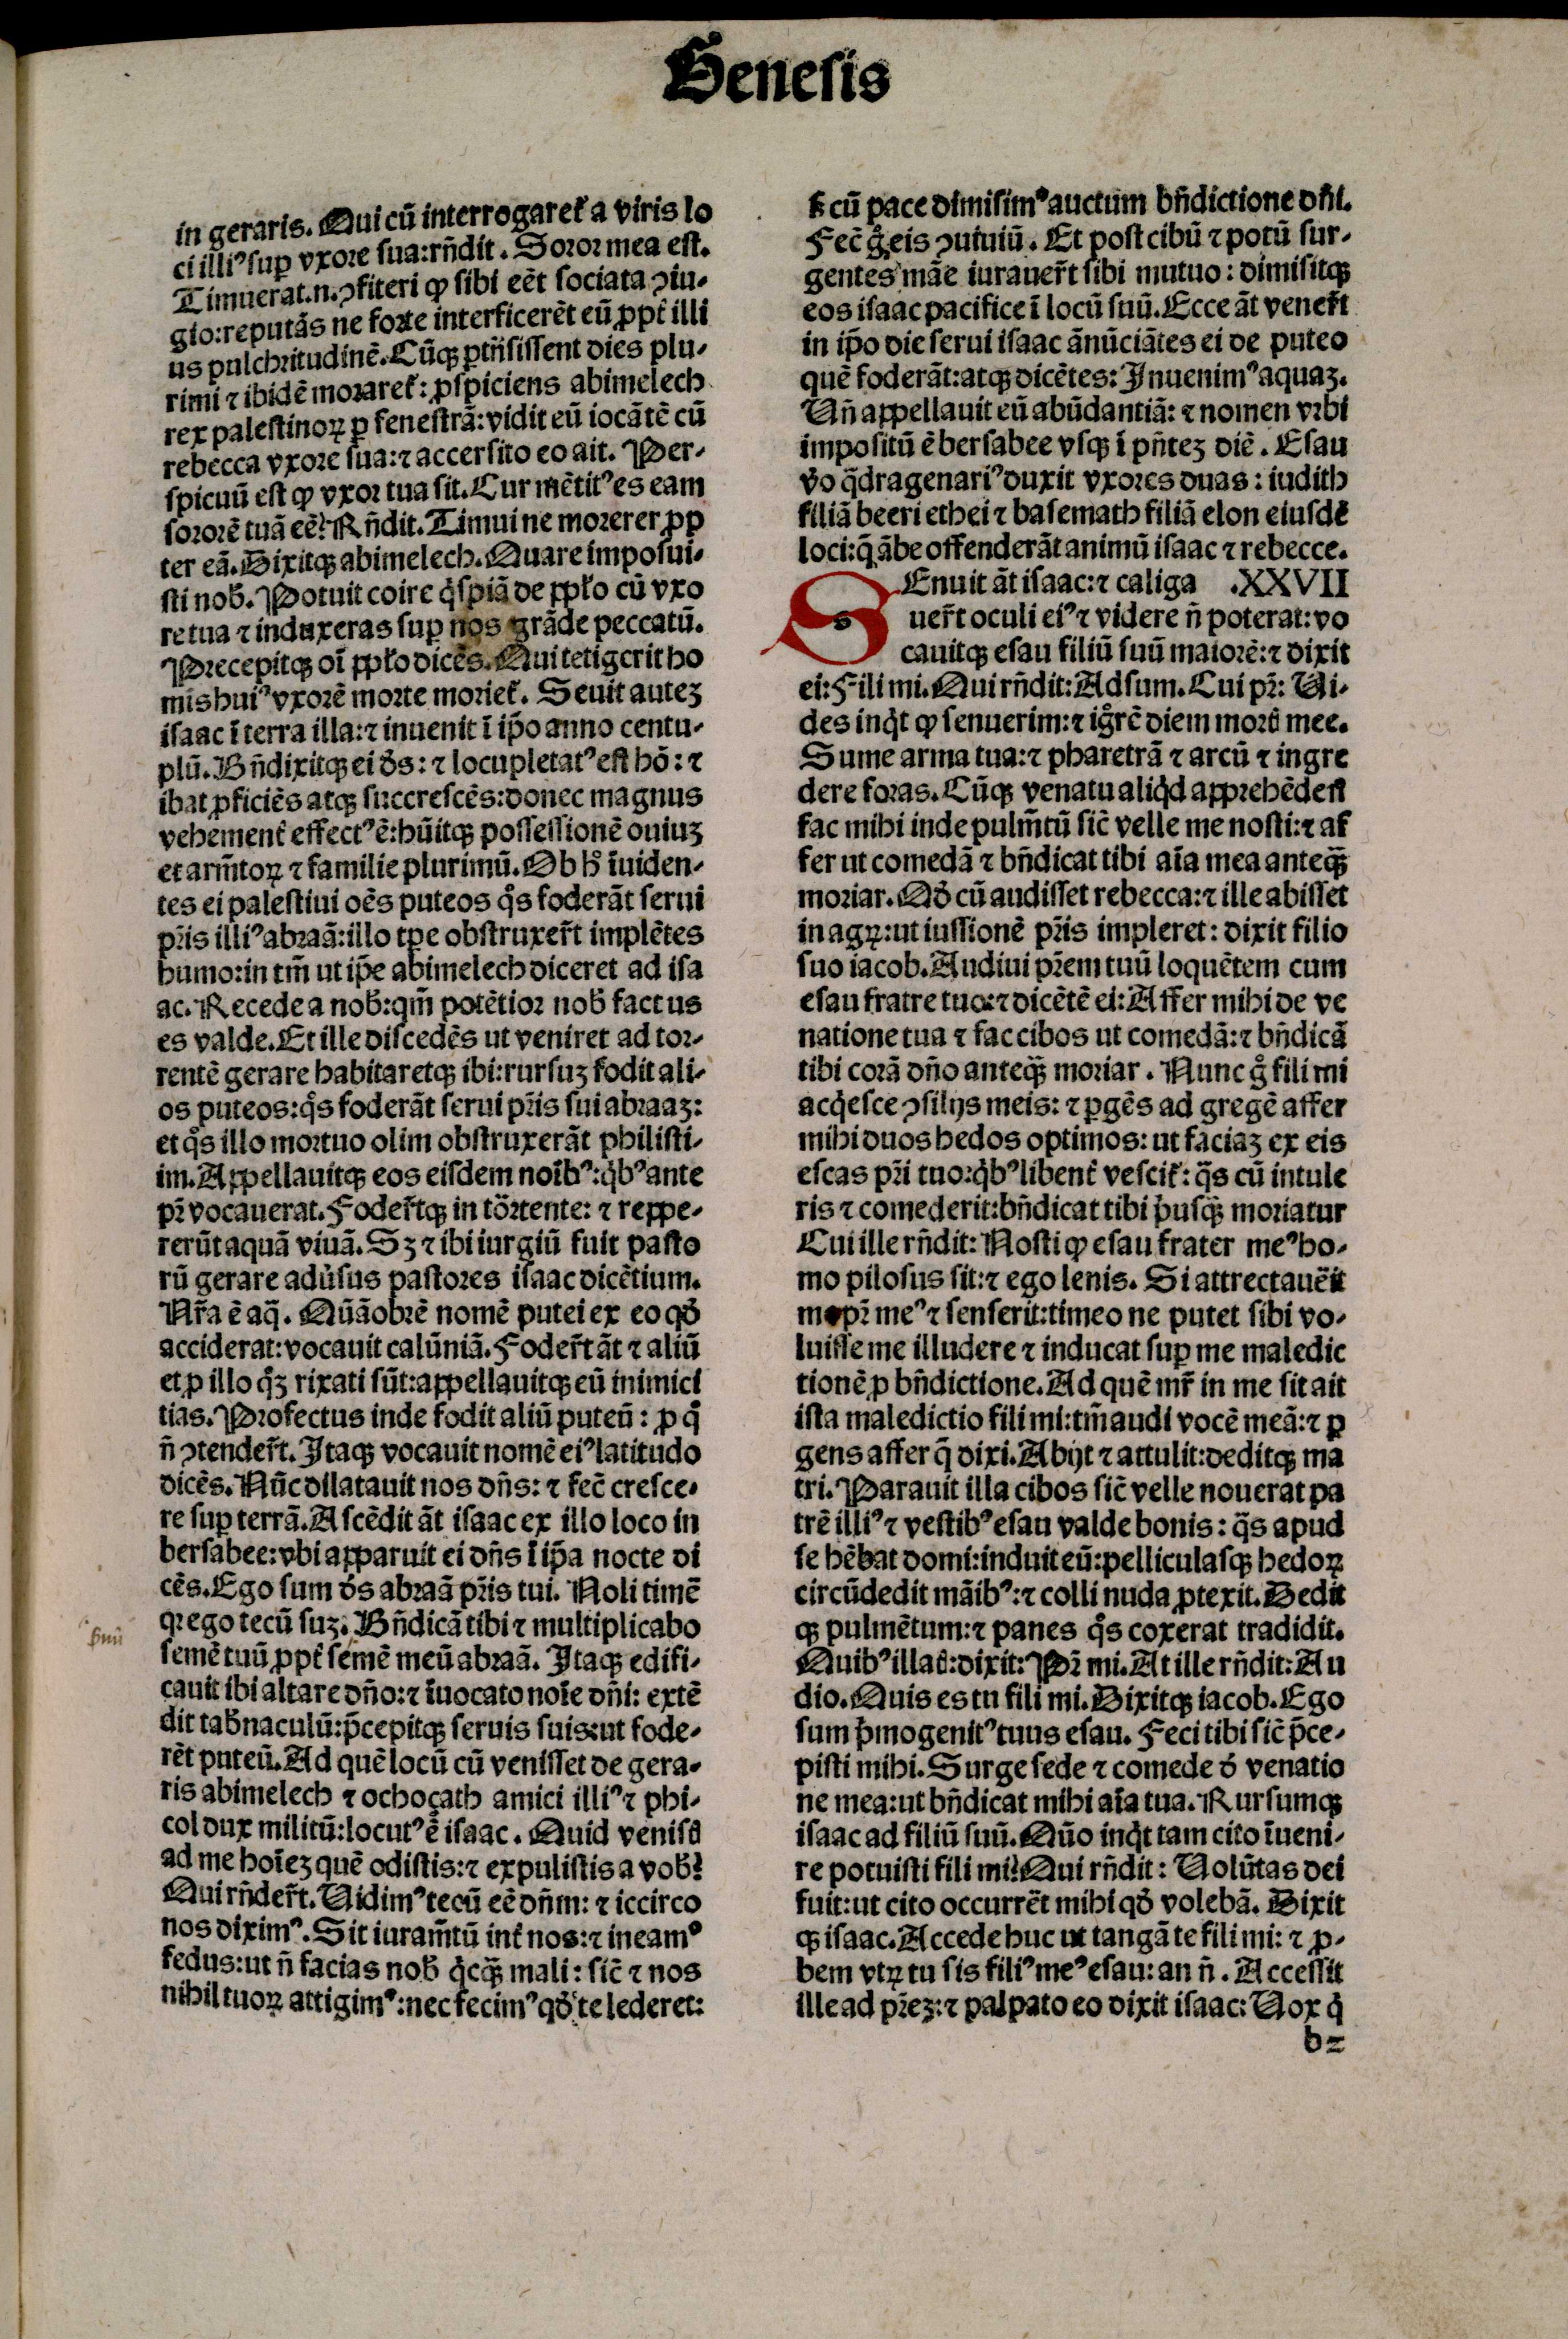 Genesis
in geraris. Qui cū interrogaret᷑ a viris lo
ci illiꝰ sup̱ vxore sua:rñdit. Soror mea est.
Timuerat.n.ꝯfiteri ꝙ sibi eēt sociata ꝯiu-
gio:reputās ne forte interficerēt eū ꝓpt̕ illi
us pulchritudinē. Cūqꝫ p̱trāsissent dies plu-
rimi ⁊ ibidē moraret᷑: ꝓspiciens abimelech
rex palestinoꝝ p̱ fenestrā:vidit eū iocātē cū
rebecca vxore sua:⁊ accersito eo ait. Per-
spicuū est ꝙ vxor tua sit. Cur mētitꝰ es eam
sororē tuā eē? Rñdit. Timui ne morerer ꝓp
ter eā. Dixitqꝫ abimelech. Quare imposui-
sti nob̄. Potuit coire q̇spiā de pp̄lo cū vxo
re tua ⁊ induxeras sup̱ nos grāde peccatū.
Precepitqꝫ oī pp̄lo dicēs. Qui tetigerit ho
mis huiꝰ vxorē morte moriet᷑. Seuit auteꝫ
isaac ī terra illa:⁊ inuenit ī ip̄o anno centu-
plū. Bñdixitqꝫ ei d̄s: ⁊ locupletatꝰ est hō: ⁊
ibat ꝓficiēs atqꝫ succrescēs:donec magnus
vehement̕ effectꝰ ē:hūitqꝫ possessionē ouiuꝫ
et arm̄toꝝ ⁊ familie plurimū. Ob h̄ īuiden-
tes ei palestiui oēs puteos q̊s foderāt serui
pr̄is illiꝰ abraā:illo tp̄e obstruxer̄t implētes
humo:in tm̄ ut ip̄e abimelech diceret ad isa
ac. Recede a nob̄:qm̄ potētior nob̄ factus
es valde. Et ille discedēs ut veniret ad tor-
rentē gerare habitaretqꝫ ibi:rursuꝫ fodit ali-
os puteos:q̊s foderāt serui pr̄is sui abraaꝫ:
et q̊s illo mortuo olim obstruxerāt philisti-
im. Appellauitqꝫ eos eisdem noībꝰ:q̇bꝰ ante
pr̄ vocauerat. Foder̄tqꝫ in tōrtente: ⁊ reppe-
rerūt aquā viuā. Sꝫ ⁊ ibi iurgiū fuit pasto
rū gerare adu̇sus pastores isaac dicētium.
Nr̄a ē aq̄. Quāobrē nomē putei ex eo qd̄
acciderat:vocauit calūniā. Foder̄t āt ⁊ aliū
et ꝓ illo q̊ꝫ rixati sūt:appellauitqꝫ eū inimici
tias. Profectus inde fodit aliū puteū: ꝓ q̊
ñ ꝯtender̄t. Itaqꝫ vocauit nomē eiꝰ latitudo
dicēs. Nūc dilatauit nos dñs: ⁊ fec̄ cresce-
re sup̱ terrā. Ascēdit āt isaac ex illo loco in
bersabee:vbi apparuit ei dñs ī ip̄a nocte di
cēs. Ego sum d̄s abraā pr̄is tui. Noli timē
qꝛ ego tecū suꝫ. Bñdicā tibi ⁊ multiplicabo
semē tuū ꝓpt̕ semē meū abraā. Itaqꝫ edifi-
cauit ibi altare dño:⁊ īuocato noīe dñi: extē
dit tab̄naculū:p̄cepitqꝫ seruis suis:ut fode-
rēt puteū. Ad quē locū cū venisset de gera-
ris abimelech ⁊ ochoçath amici illiꝰ ⁊ phi-
col dux militū:locutꝰ ē isaac. Quid venisꝭ
ad me hoīeꝫ quē odistis:⁊ expulistis a vob̄?
Qui rñder̄t. Uidimꝰ tecū eē dñm: ⁊ iccirco
nos diximꝰ. Sit iuram̄tū int̕ nos:⁊ ineamꝰ
fedus:ut ñ facias nob̄ q̇cqꝫ̄ mali: sic̄ ⁊ nos
nihil tuoꝝ attigimꝰ:nec fecimꝰ qd̄ te lederet:
sꝫ cū pace dimisimꝰ auctum bñdictione dñi.
Fec̄ g̊ eis ꝯuiuiū. Et post cibū ⁊ potū sur-
gentes māe iurauer̄t sibi mutuo: dimisitqꝫ
eos isaac pacifice ī locū suū. Ecce āt vener̄t
in ip̄o die serui isaac ānūciātes ei de puteo
quē foderāt:atqꝫ dicētes: Inuenimꝰ aquaꝫ.
Uñ appellauit eū abūdantiā: ⁊ nomen vrbi
impositū ē bersabee vsqꝫ ī pñteꝫ diē. Esau
v̄o q̄dragenariꝰ duxit vxores duas: iudith
filiā beeri ethei ⁊ basemath filiā elon eiusdē
loci:q̄ ābe offenderāt animū isaac ⁊ rebecce.
SEnuit āt isaac:⁊ caliga .XXVII
uer̄t oculi eiꝰ ⁊ videre ñ poterat:vo
cauitqꝫ esau filiū suū maiorē:⁊ dixit
ei: Fili mi. Qui rñdit: Adsum. Cui pr̄: Ui-
des inq̇t ꝙ senuerim:⁊ ig̊rē diem morꝭ mee.
Sume arma tua:⁊ pharetrā ⁊ arcū ⁊ ingre
dere foras. Cūqꝫ venatu aliq̇d apprehēderꝭ
fac mihi inde pulm̄tū sic̄ velle me nosti:⁊ af
fer ut comedā ⁊ bñdicat tibi aīa mea anteqꝫ̄
moriar. Qd̄ cū audisset rebecca:⁊ ille abisset
in agꝝ:ut iussionē pr̄is impleret: dixit filio
suo iacob. Audiui pr̄em tuū loquētem cum
esau fratre tuo:⁊ dicētē ei: Affer mihi de ve
natione tua ⁊ fac cibos ut comedā:⁊ bñdicā
tibi corā dño anteqꝫ̄ moriar. Nunc g̊ fili mi
acq̇esce ꝯsilijs meis: ⁊ p̱gēs ad gregē affer
mihi duos hedos optimos: ut faciaꝫ ex eis
escas pr̄i tuo:q̇bꝰ libent̕ vescit᷑: q̄s cū intule
ris ⁊ comederit:bñdicat tibi p̓usqꝫ̄ moriatur
Cui ille rñdit: Nosti ꝙ esau frater meꝰ ho-
mo pilosus sit:⁊ ego lenis. Si attrectauēit
me pr̄ meꝰ ⁊ senserit:timeo ne putet sibi vo-
luisse me illudere ⁊ inducat sup̱ me maledic
tionē ꝓ bñdictione. Ad quē mr̄ in me sit ait
ista maledictio fili mi:tm̄ audi vocē meā:⁊ p̱
gens affer q̄ dixi. Abijt ⁊ attulit:deditqꝫ ma
tri. Parauit illa cibos sic̄ velle nouerat pa
trē illiꝰ ⁊ vestibꝰ esau valde bonis: q̄s apud
se hēbat domi:induit eū:pelliculasqꝫ hedoꝝ
circūdedit māibꝰ:⁊ colli nuda ꝓtexit. Dedit
qꝫ pulmētum:⁊ panes q̊s coxerat tradidit.
Quibꝰ illatꝭ:dixit: Pr̄ mi. At ille rñdit: Au
dio. Quis es tu fili mi. Dixitqꝫ iacob. Ego
sum p̓mogenitꝰ tuus esau. Feci tibi sic̄ p̄ce-
pisti mihi. Surge sede ⁊ comede d̄ venatio
ne mea:ut bñdicat mihi aīa tua. Rursumqꝫ
isaac ad filiū suū. Quō inq̇t tam cito īueni-
re potuisti fili mi? Qui rñdit: Uolūtas dei
fuit:ut cito occurrēt mihi qd̄ volebā. Dixit
qꝫ isaac. Accede huc ut tangā te fili mi: ⁊ ꝓ-
bem vtꝝ tu sis filiꝰ meꝰ esau: an ñ. Accessit
ille ad pr̄eꝫ:⁊ palpato eo dixit isaac: Uox q̇
b2